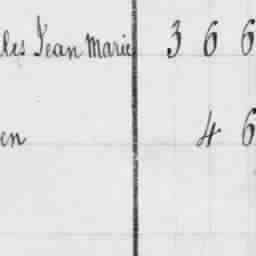 les Jean Marie 3 6 6
en 4 6